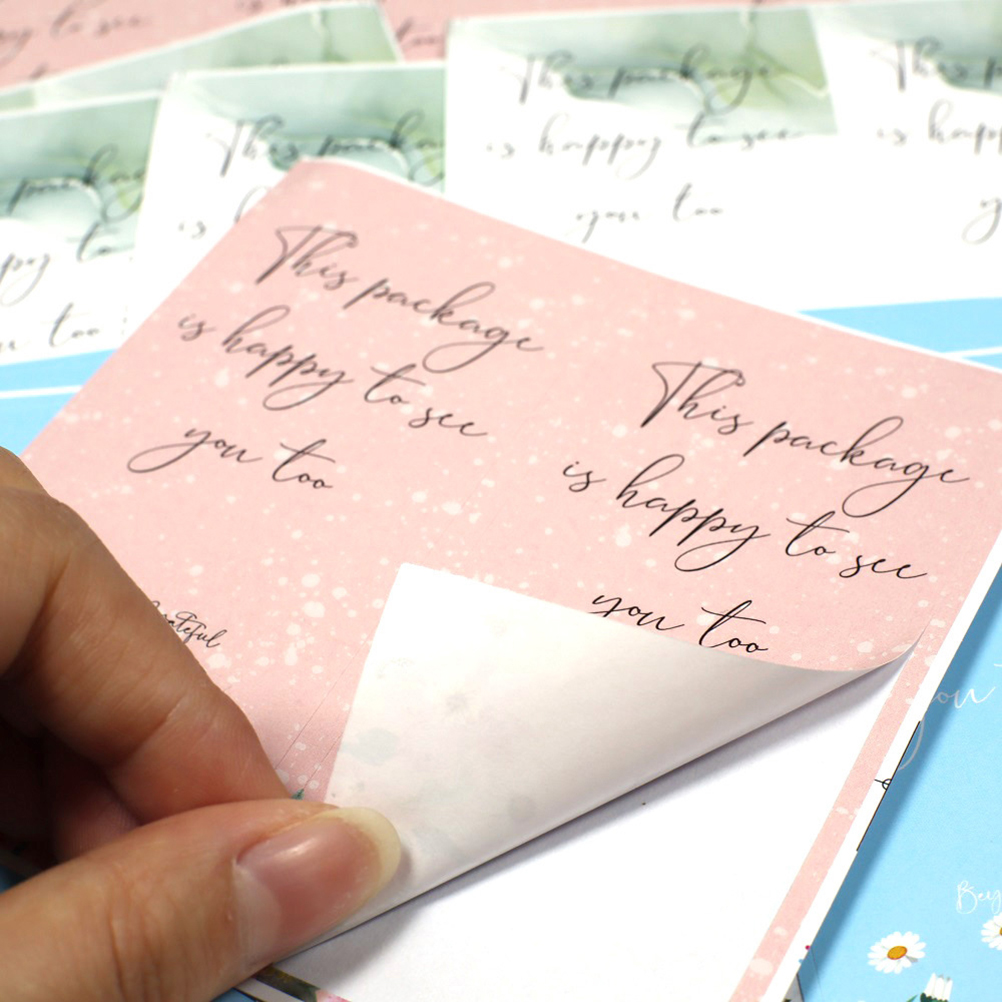 This package
is happy to see
you too
This package
is happy to see
you too
This package
is happy to see
you too
This package
is happy to see
you too
This
is happy
you too